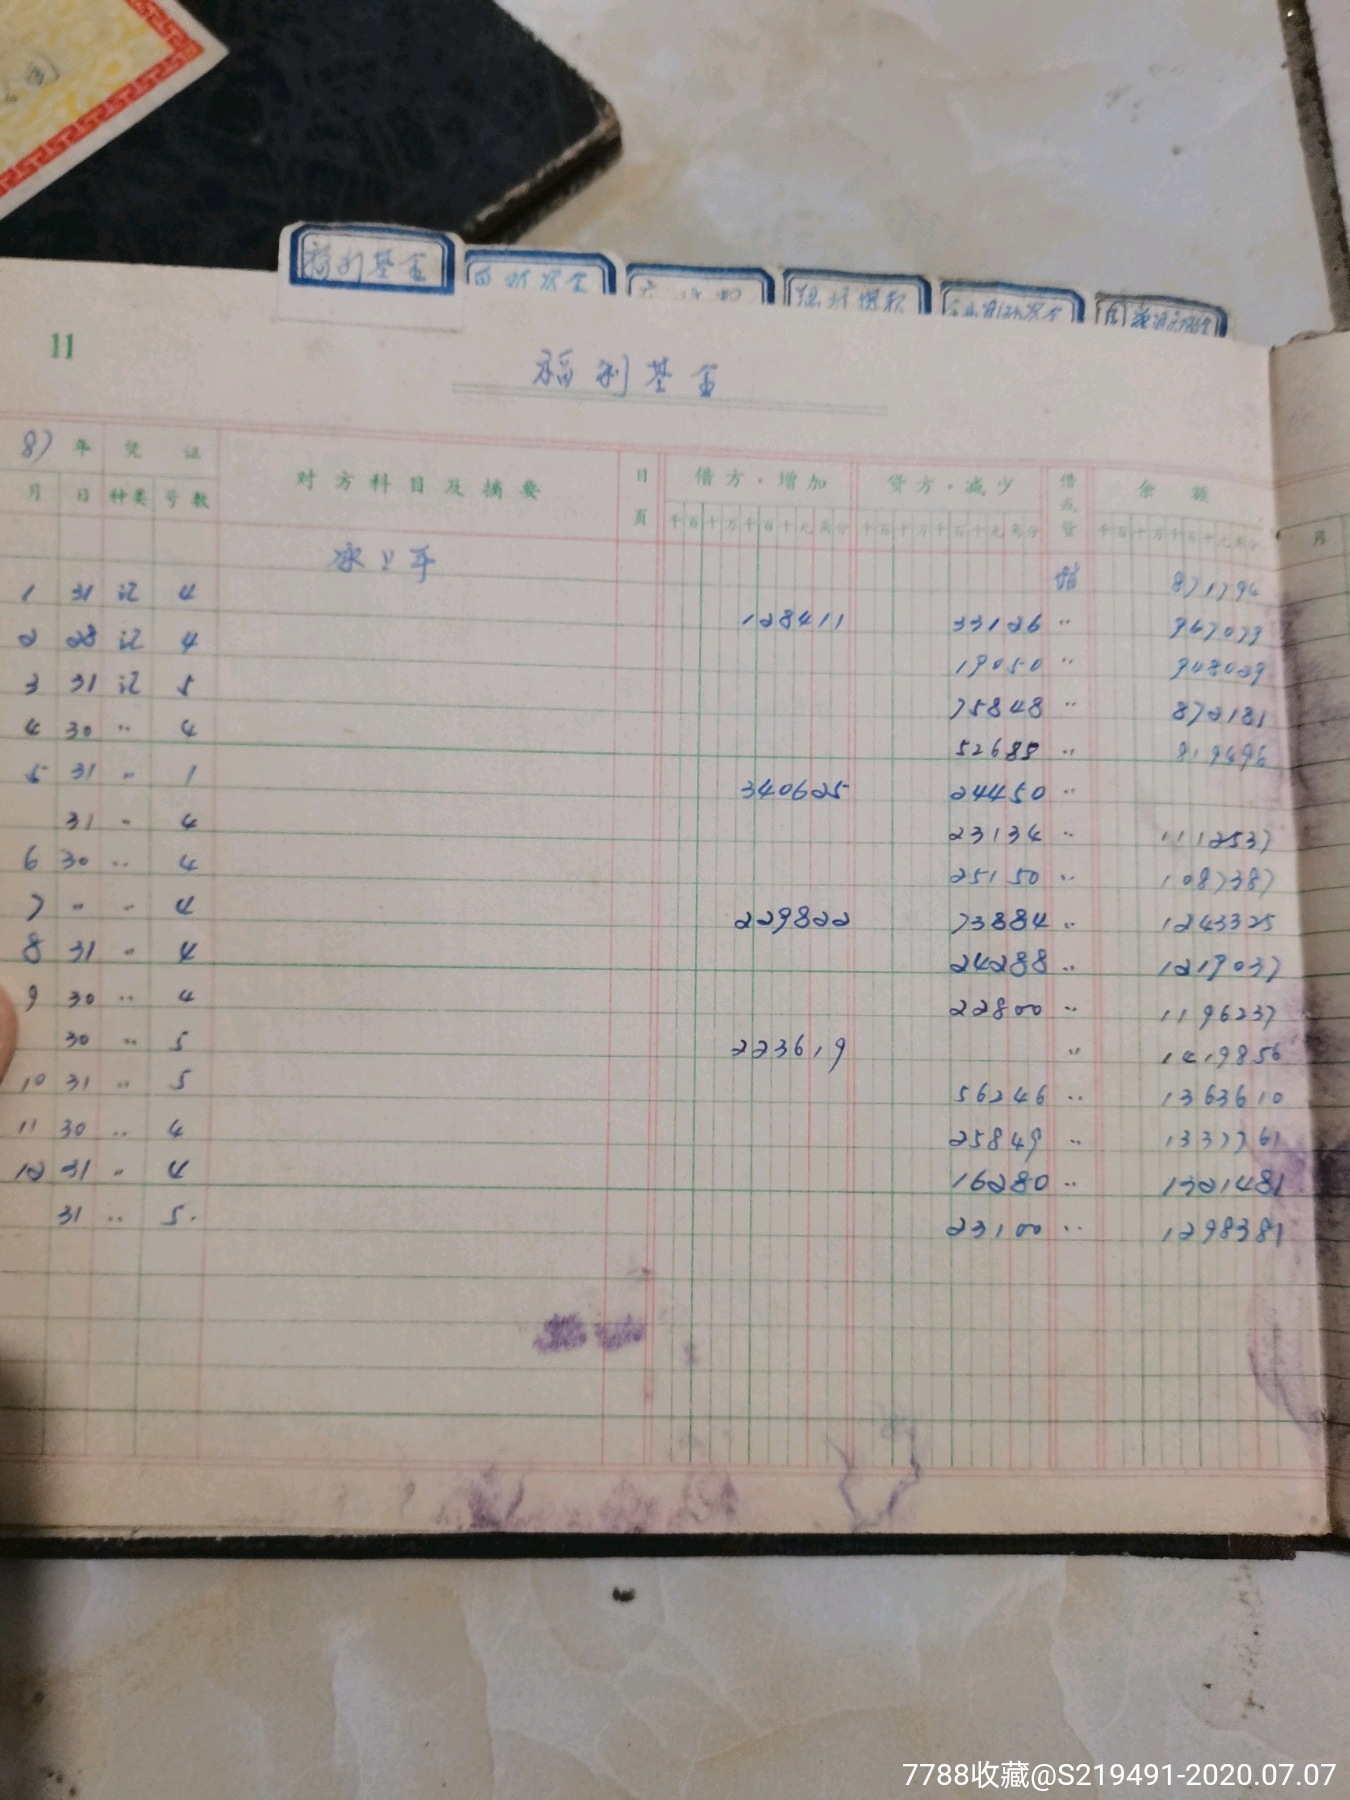 福利基金
银行借款
11
福利基金
87 年 凭 证 对方科目及摘要 日页 借方·增加 贷方·减少 借或贷 余 额
月 日 种类 号数 千百十万千百十元角分 千百十万千百十元角分 千百十万千百十元角分
承上年 增 871794
1 31 记 4 128411 33126 〃 967079
2 28 记 4 19050 〃 948029
3 31 记 5 75848 〃 872181
4 30 〃 4 52685 〃 819496
5 31 〃 1 340625 24450 〃
31 〃 4 23134 〃 1112537
6 30 〃 4 25150 〃 1087387
7 〃 〃 4 229822 73884 〃 1243325
8 31 〃 4 24288 〃 1219037
9 30 〃 4 22800 〃 1196237
30 〃 5 223619 〃 1419856
10 31 〃 5 56246 〃 1363610
11 30 〃 4 25849 〃 1337761
12 31 〃 4 16280 〃 1321481
31 〃 5. 23100 〃 1298381
月
7788收藏@S219491-2020.07.07